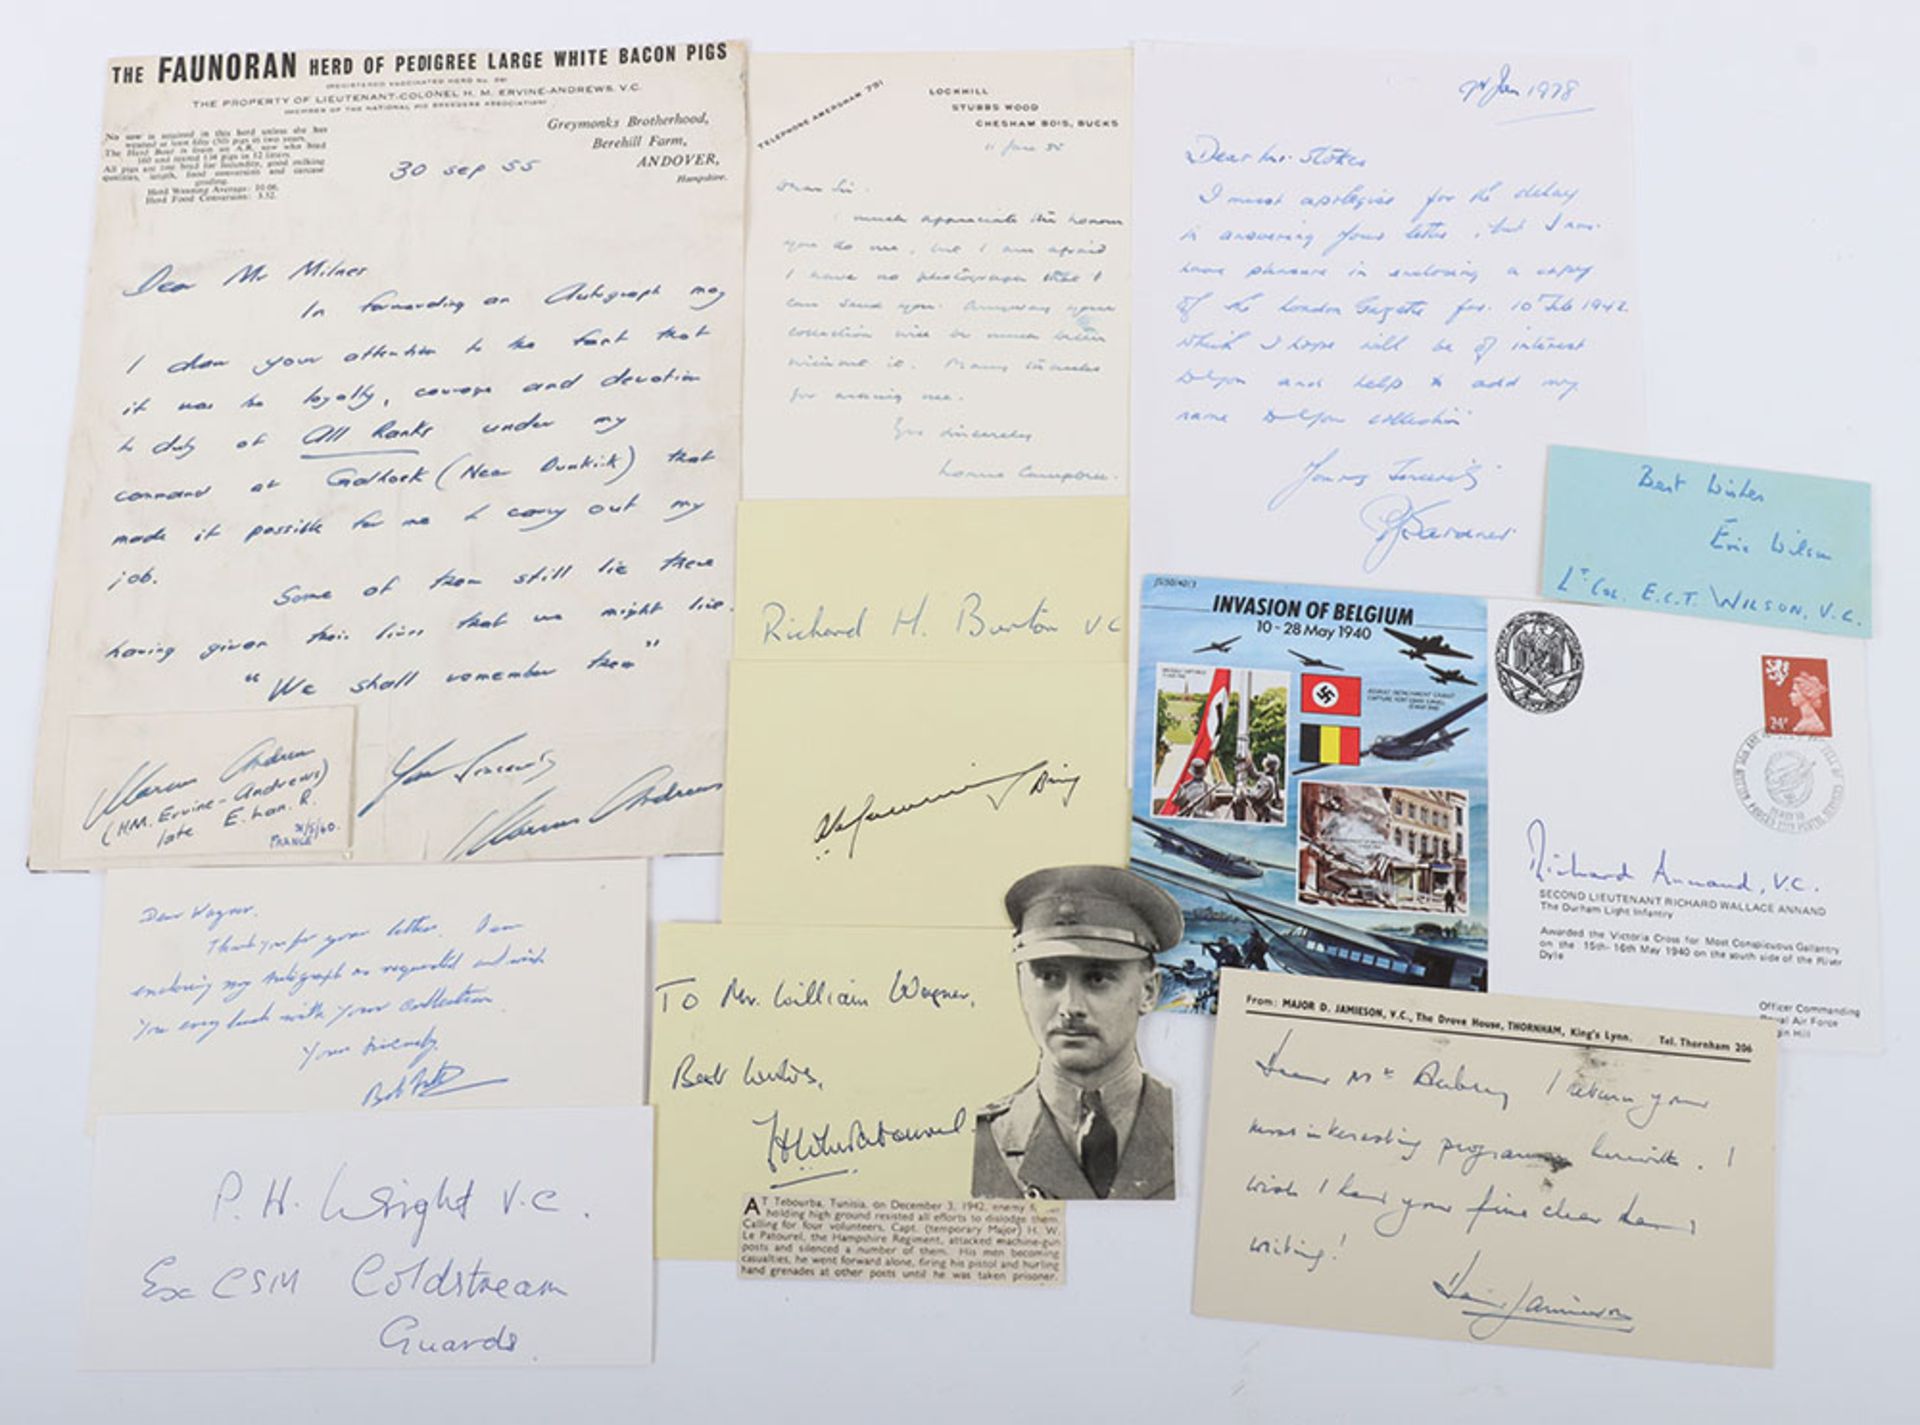 THE FAUNORAN HERD OF PEDIGREE LARGE WHITE BACON PIGS
(REGISTERED VACCINATED HERD No.
THE PROPERTY OF LIEUTENANT-COLONEL H. M. ERVINE-ANDREWS, V.C.
(MEMBER OF THE NATIONAL PIG BREEDERS ASSOCIATION)
No sow is retained in this herd unless she has
weaned at least fifty (50) pigs in two years.
Herd Weaning Average: 10.06.
Herd Food Conversion: 3.52.
Greymonks Brotherhood,
Berehill Farm,
ANDOVER,
Hampshire.
30 Sep 55
Dear Mr Milnes
In forwarding an Autograph may
I draw your attention to the fact that
it was the loyalty, courage and devotion
to duty of All Ranks under my
command at Galhoek (Near Dunkirk) that
made it possible for me to carry out my
job.
Some of them still lie there
having given their lives that we might live.
"We shall remember them"
Yours Sincerely
Marcus Andrews
Marcus Andrews
(H.M. Ervine-Andrews)
late E. Lan. R.
31/5/40.
FRANCE
TELEPHONE AMERSHAM 791
LOCKHILL
STUBBS WOOD
CHESHAM BOIS, BUCKS
11 June 55
Dear Sir.
I much appreciate the honour
you do me, but I am afraid
I have no photograph that I
can send you. Anyway your
collection will be much better
without it. Many thanks
for asking me.
Yrs sincerely
Lorne Campbell.
9th Jan 1978
Dear Mr. Stokes
I must apologise for the delay
in answering your letter, but I now
have pleasure in enclosing a copy
of the London Gazette for 10 Feb 1942
which I hope will be of interest
to you and help to add my
name to your collection
Yours Sincerely
PJ Gardner
Best Wishes
Eric Wilson
Lt Col. E.C.T. WILSON, V.C.
Richard H. Burton VC
JS50/40/3
INVASION OF BELGIUM
10-28 May 1940
24P
Richard Annand, V.C.
SECOND LIEUTENANT RICHARD WALLACE ANNAND
The Durham Light Infantry
Awarded the Victoria Cross for Most Conspicuous Gallantry
on the 15th-16th May 1940 on the south side of the River
Dyle
Officer Commanding
Royal Air Force
gin Hill
Dear Wagner,
Thank you for your letter. I am
enclosing my Autograph as requested and wish
you every luck with your collection.
Yours sincerely
To Mr. William Wagner,
Best Wishes,
H W Le Patourel.
AT Tebourba, Tunisia, on December 3, 1942, enemy
holding high ground resisted all efforts to dislodge them.
Calling for four volunteers, Capt. (temporary Major) H. W.
Le Patourel, the Hampshire Regiment, attacked machine-gun
posts and silenced a number of them. His men becoming
casualties, he went forward alone, firing his pistol and hurling
hand grenades at other posts until he was taken prisoner.
From: MAJOR D. JAMIESON, V.C., The Drove House, THORNHAM, King's Lynn. Tel. Thornham 206
Dear Mr I return your
most interesting programme herewith. I
wish I had your fine clear hand
writing!
David Jamieson
P. H. Wright V.C.
Ex CSM Coldstream
Guards.